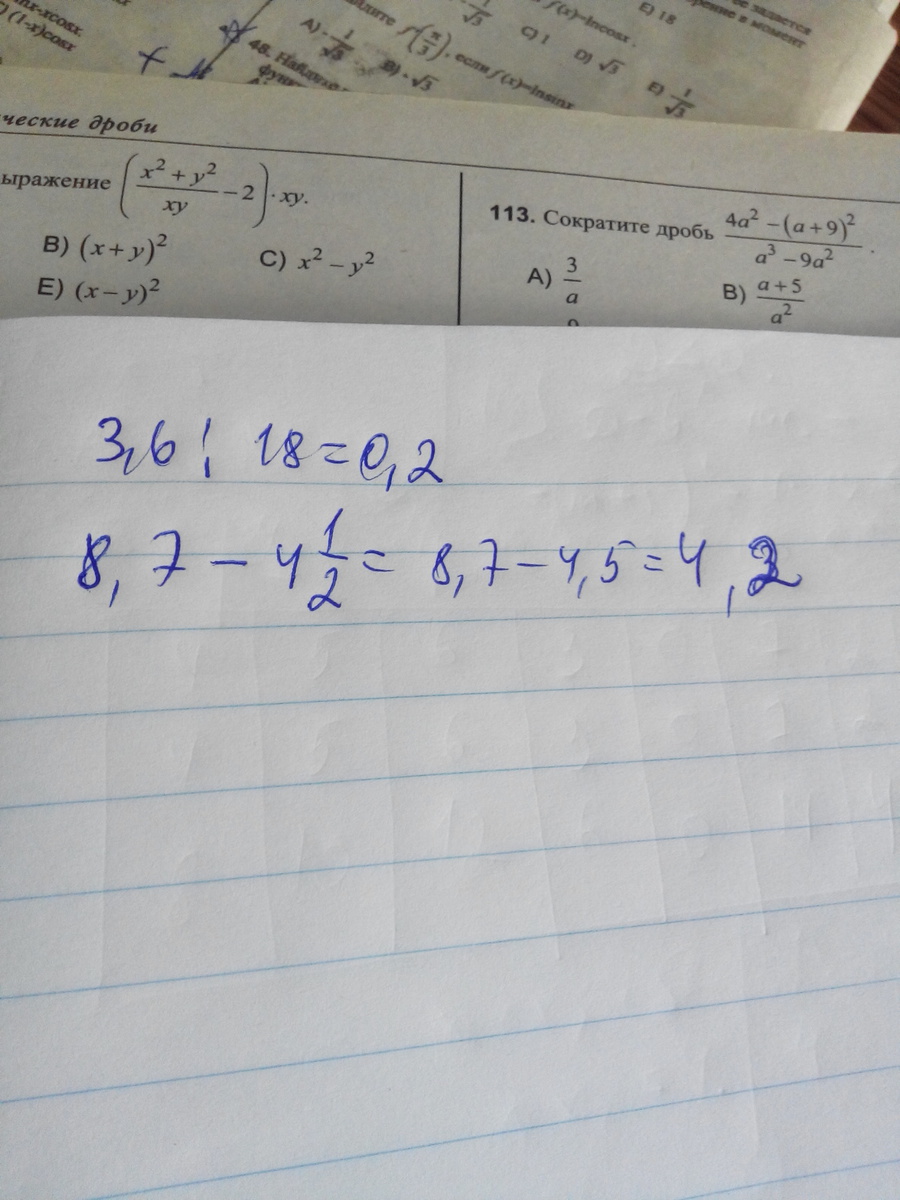 (1-x)cosx
A) -1/√3
B) -√3
f'(π/3), если f(x)=lnsinx
C) 1
D) √3
E) 1/√3
f(x)=lncosx.
E) 18
48. Найдите
ческие дроби
ыражение ((x² + y²)/xy − 2) · xy.
B) (x + y)²
C) x² − y²
E) (x − y)²
113. Сократите дробь (4a² − (a + 9)²)/(a³ − 9a²).
A) 3/a
B) (a + 5)/a²
3,6 : 18 = 0,2
8,7 − 4 1/2 = 8,7 − 4,5 = 4,2